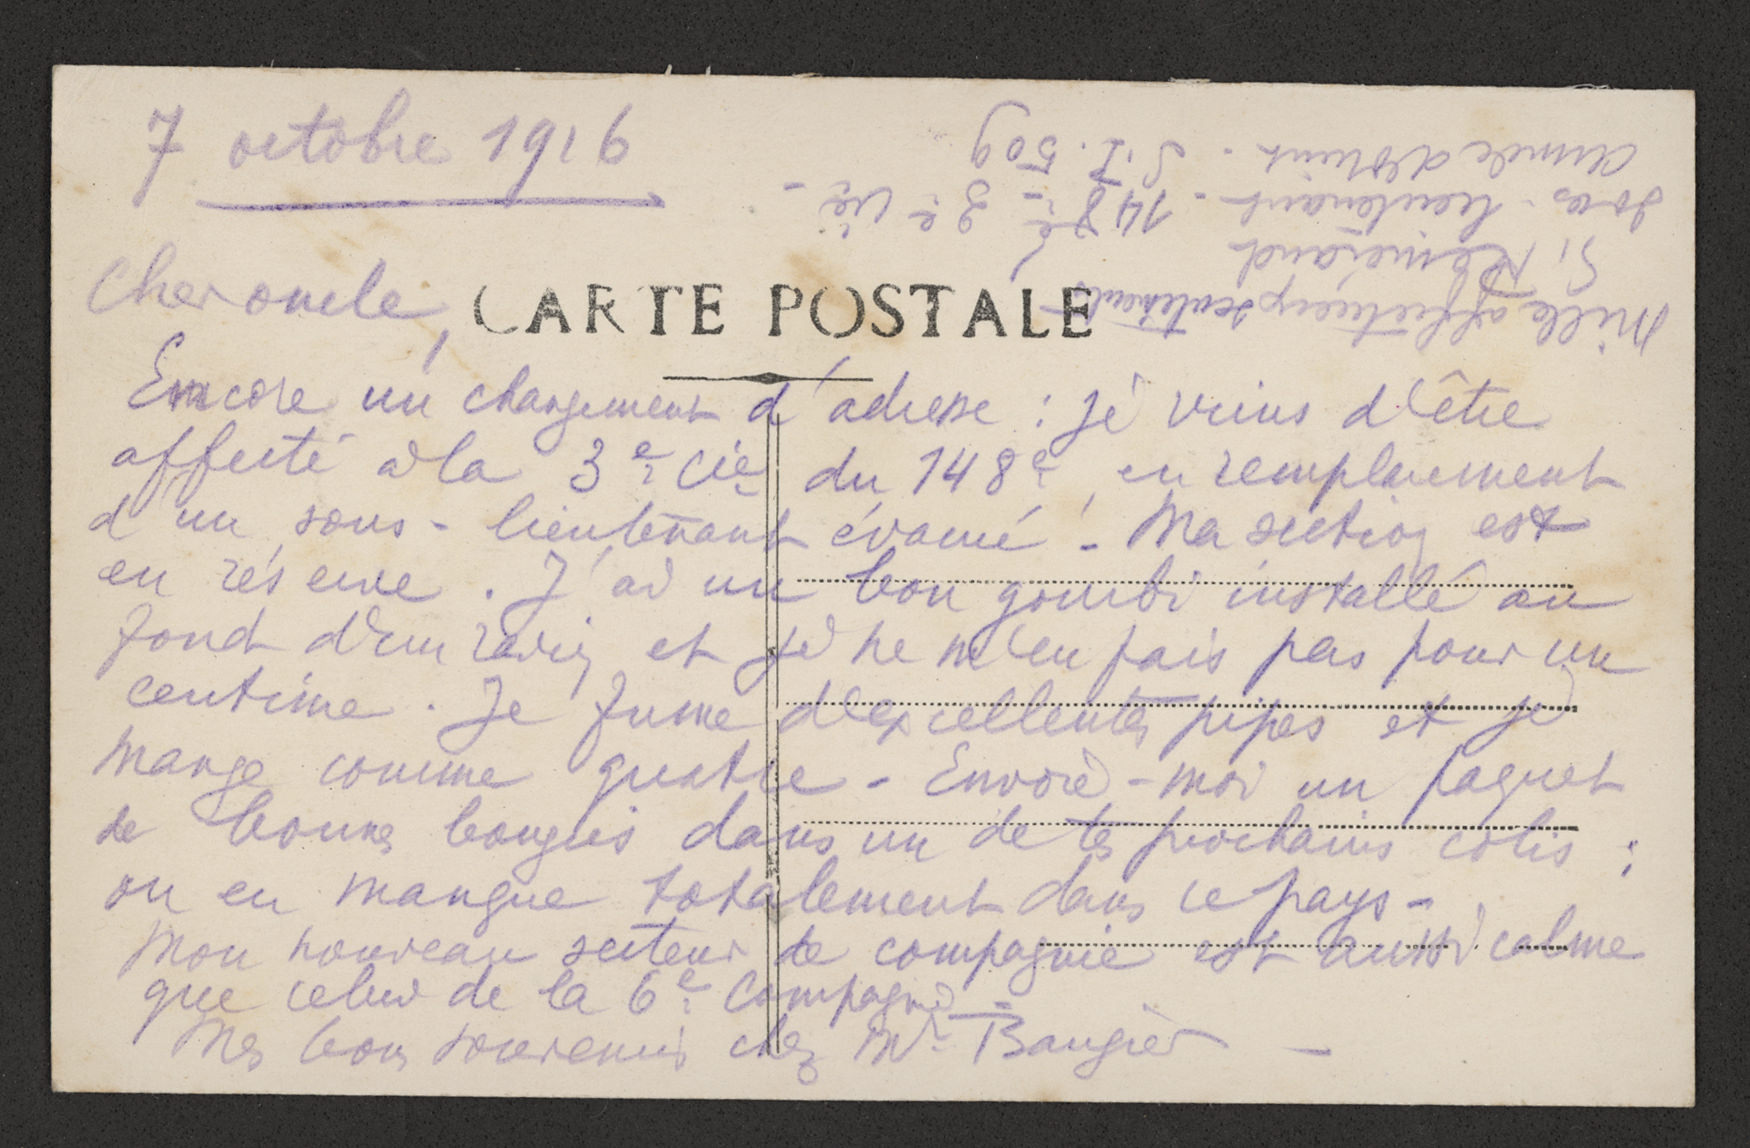 7 octobre 1916
Cher oncle,
CARTE POSTALE
Encore un changement d'adresse : je viens d'être
affecté à la 3e Cie du 148e, en remplacement
d'un sous-lieutenant évacué. - Ma section est
en réserve. J'ai un bon gourbi installé au
fond d'un ravin, et je ne m'en fais pas pour un
centime. Je fume d'excellentes pipes et je
mange comme quatre - Envoie-moi un paquet
de bonnes bougies dans un de tes prochains colis ;
on en manque totalement dans ce pays -
Mon nouveau secteur de compagnie est aussi calme
que celui de la 6e Compagnie -
Mes bons souvenirs chez Mr Baugier -
Mille affectueux sentiments
G. Rémérand
sous-lieutenant - 148e - 3e Cie -
Armée d'Orient - S.P. 509